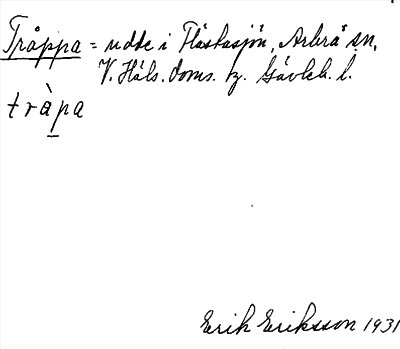 Tråppa = udde i Flästasjön, Arbrå sn,
V. Häls. doms. tz. Gävleb. l.
tràpa
Erik Eriksson 1931